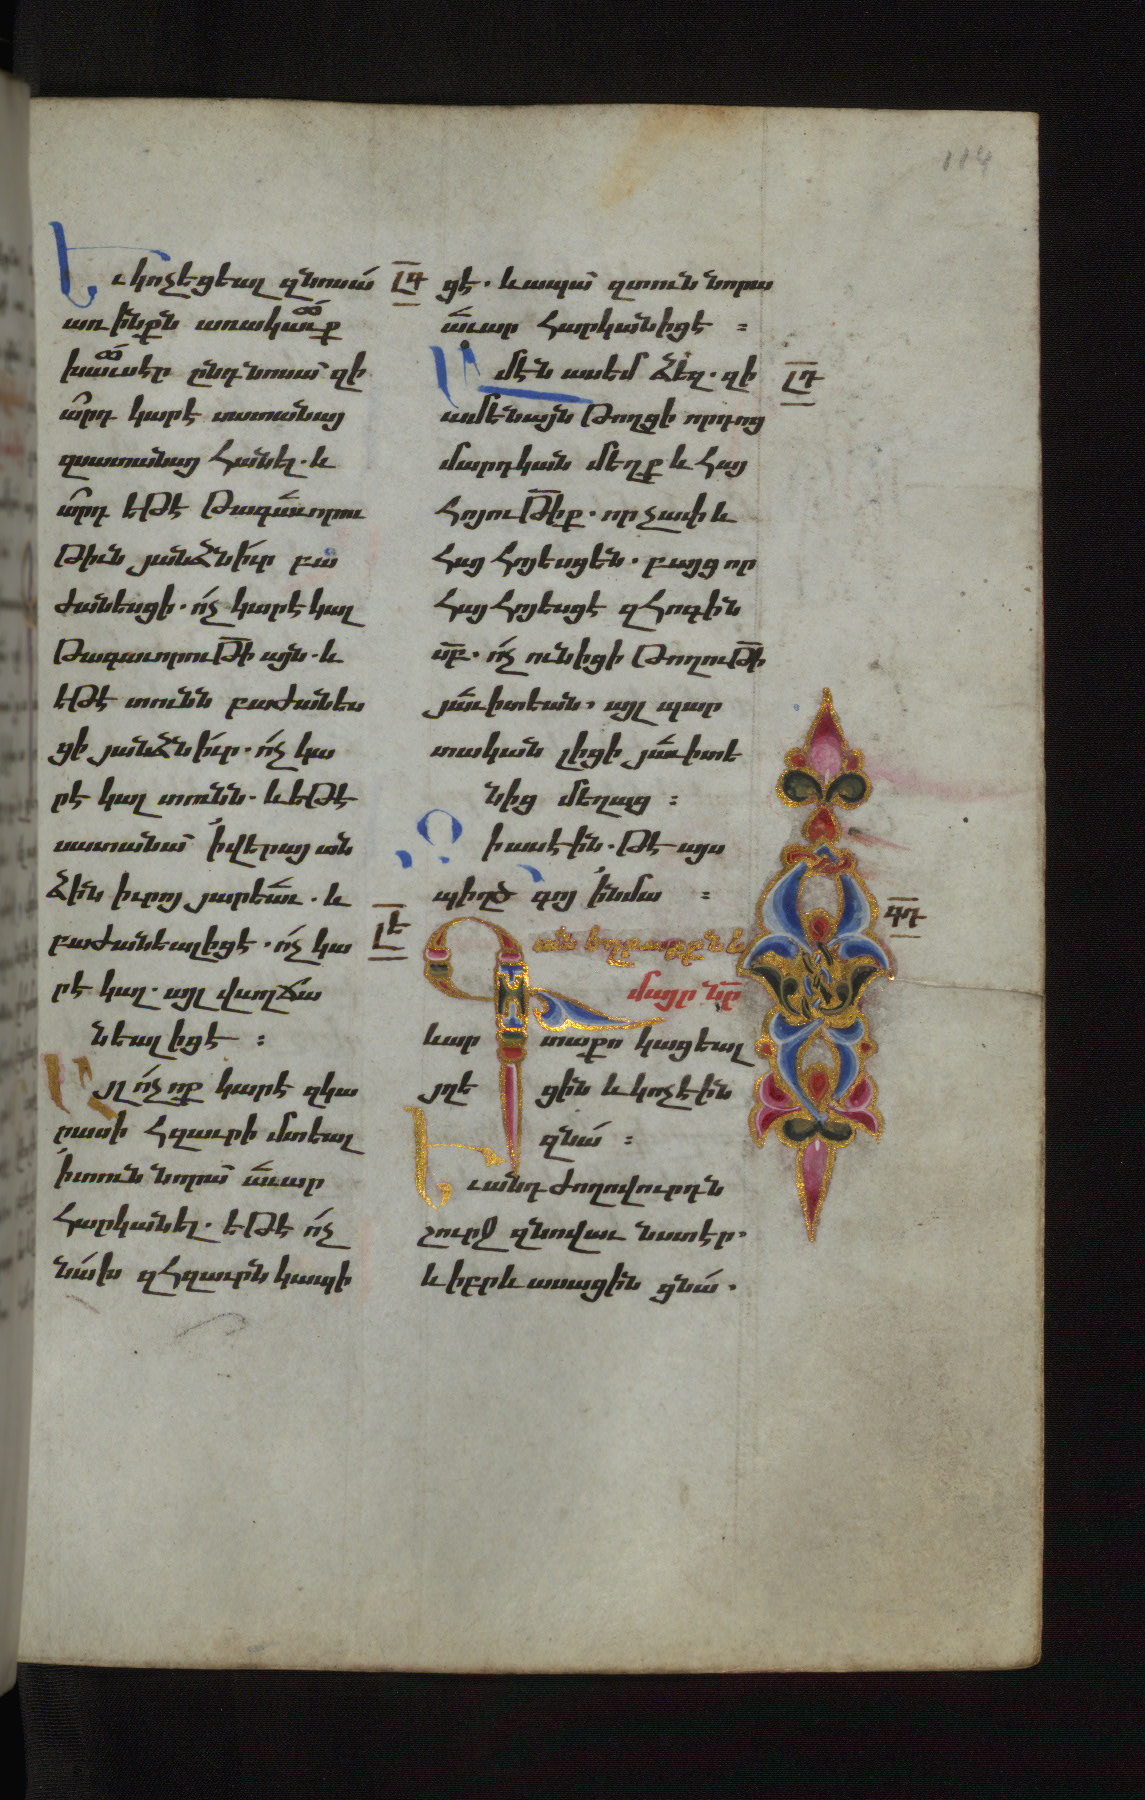 114
Եւ կոչեցեալ զնոսա́
առ ինքն առակաւք
խաւսէր ընդ նոսա՝ զի
ա՞րդ կարէ սատանայ
զսատանայ հանել. և
ա՞րդ եթէ թագաւորու
թիւն յանձն իւր բա
ժանեսցի. ո́չ կարէ կալ
թագաւորութի այն. և
եթէ տունն բաժանես
ցի յանձն իւր. ո́չ կա
րէ կալ տունն. և եթէ
սատանա՝ ի վերայ ան
ձին իւրոյ յարեաւ. և
բաժանեալ իցէ. ո́չ կա
րէ կալ. այլ վաղճա
նեալ իցէ :
Այլ ո́չ ոք կարէ զկա
րասի հզաւրի մտեալ
ի տուն նորա՝ աւար
հարկանել. եթէ ո́չ
նա́խ զհզաւրն կապի
ԼԳ
ցէ. և ապա՝ զտուն նորա
աւար հարկանիցէ :
Ամէն ասեմ ձեզ. զի
ԼԴ
ամենայն թողցի որդոց
մարդկան մեղք և հայ
հոյութիք. որչափ և
հայհոյեսցեն. բայց որ
հայհոյեսցէ զհոգին
սբ. ո́չ ունիցի թողութի
յաւիտեան, այլ պար
տական լիցի յաւիտե
նից մեղաց :
Զի ասէին. թէ այս
պիղծ գոյ ի նմա :
ԼԵ
Գան եղբարքն և
մայր նր
ԳԴ
և ար տաքո կացեալ
յղե ցին և կոչէին
զնա́ :
Եւ անդ ժողովուրդն
շուրջ զնովաւ նստէր.
և իբրև ասացին ցնա́.